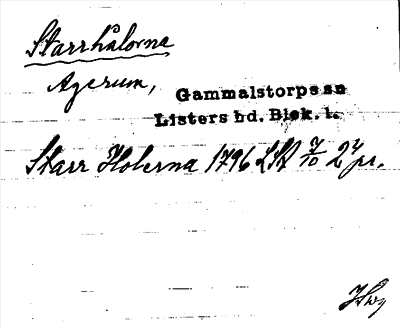 Starrhålorna
Agerum,
Gammalstorps sn
Listers hd. Blek. l.
Starr Holerna 1796 LSA 7/10 27 pr.